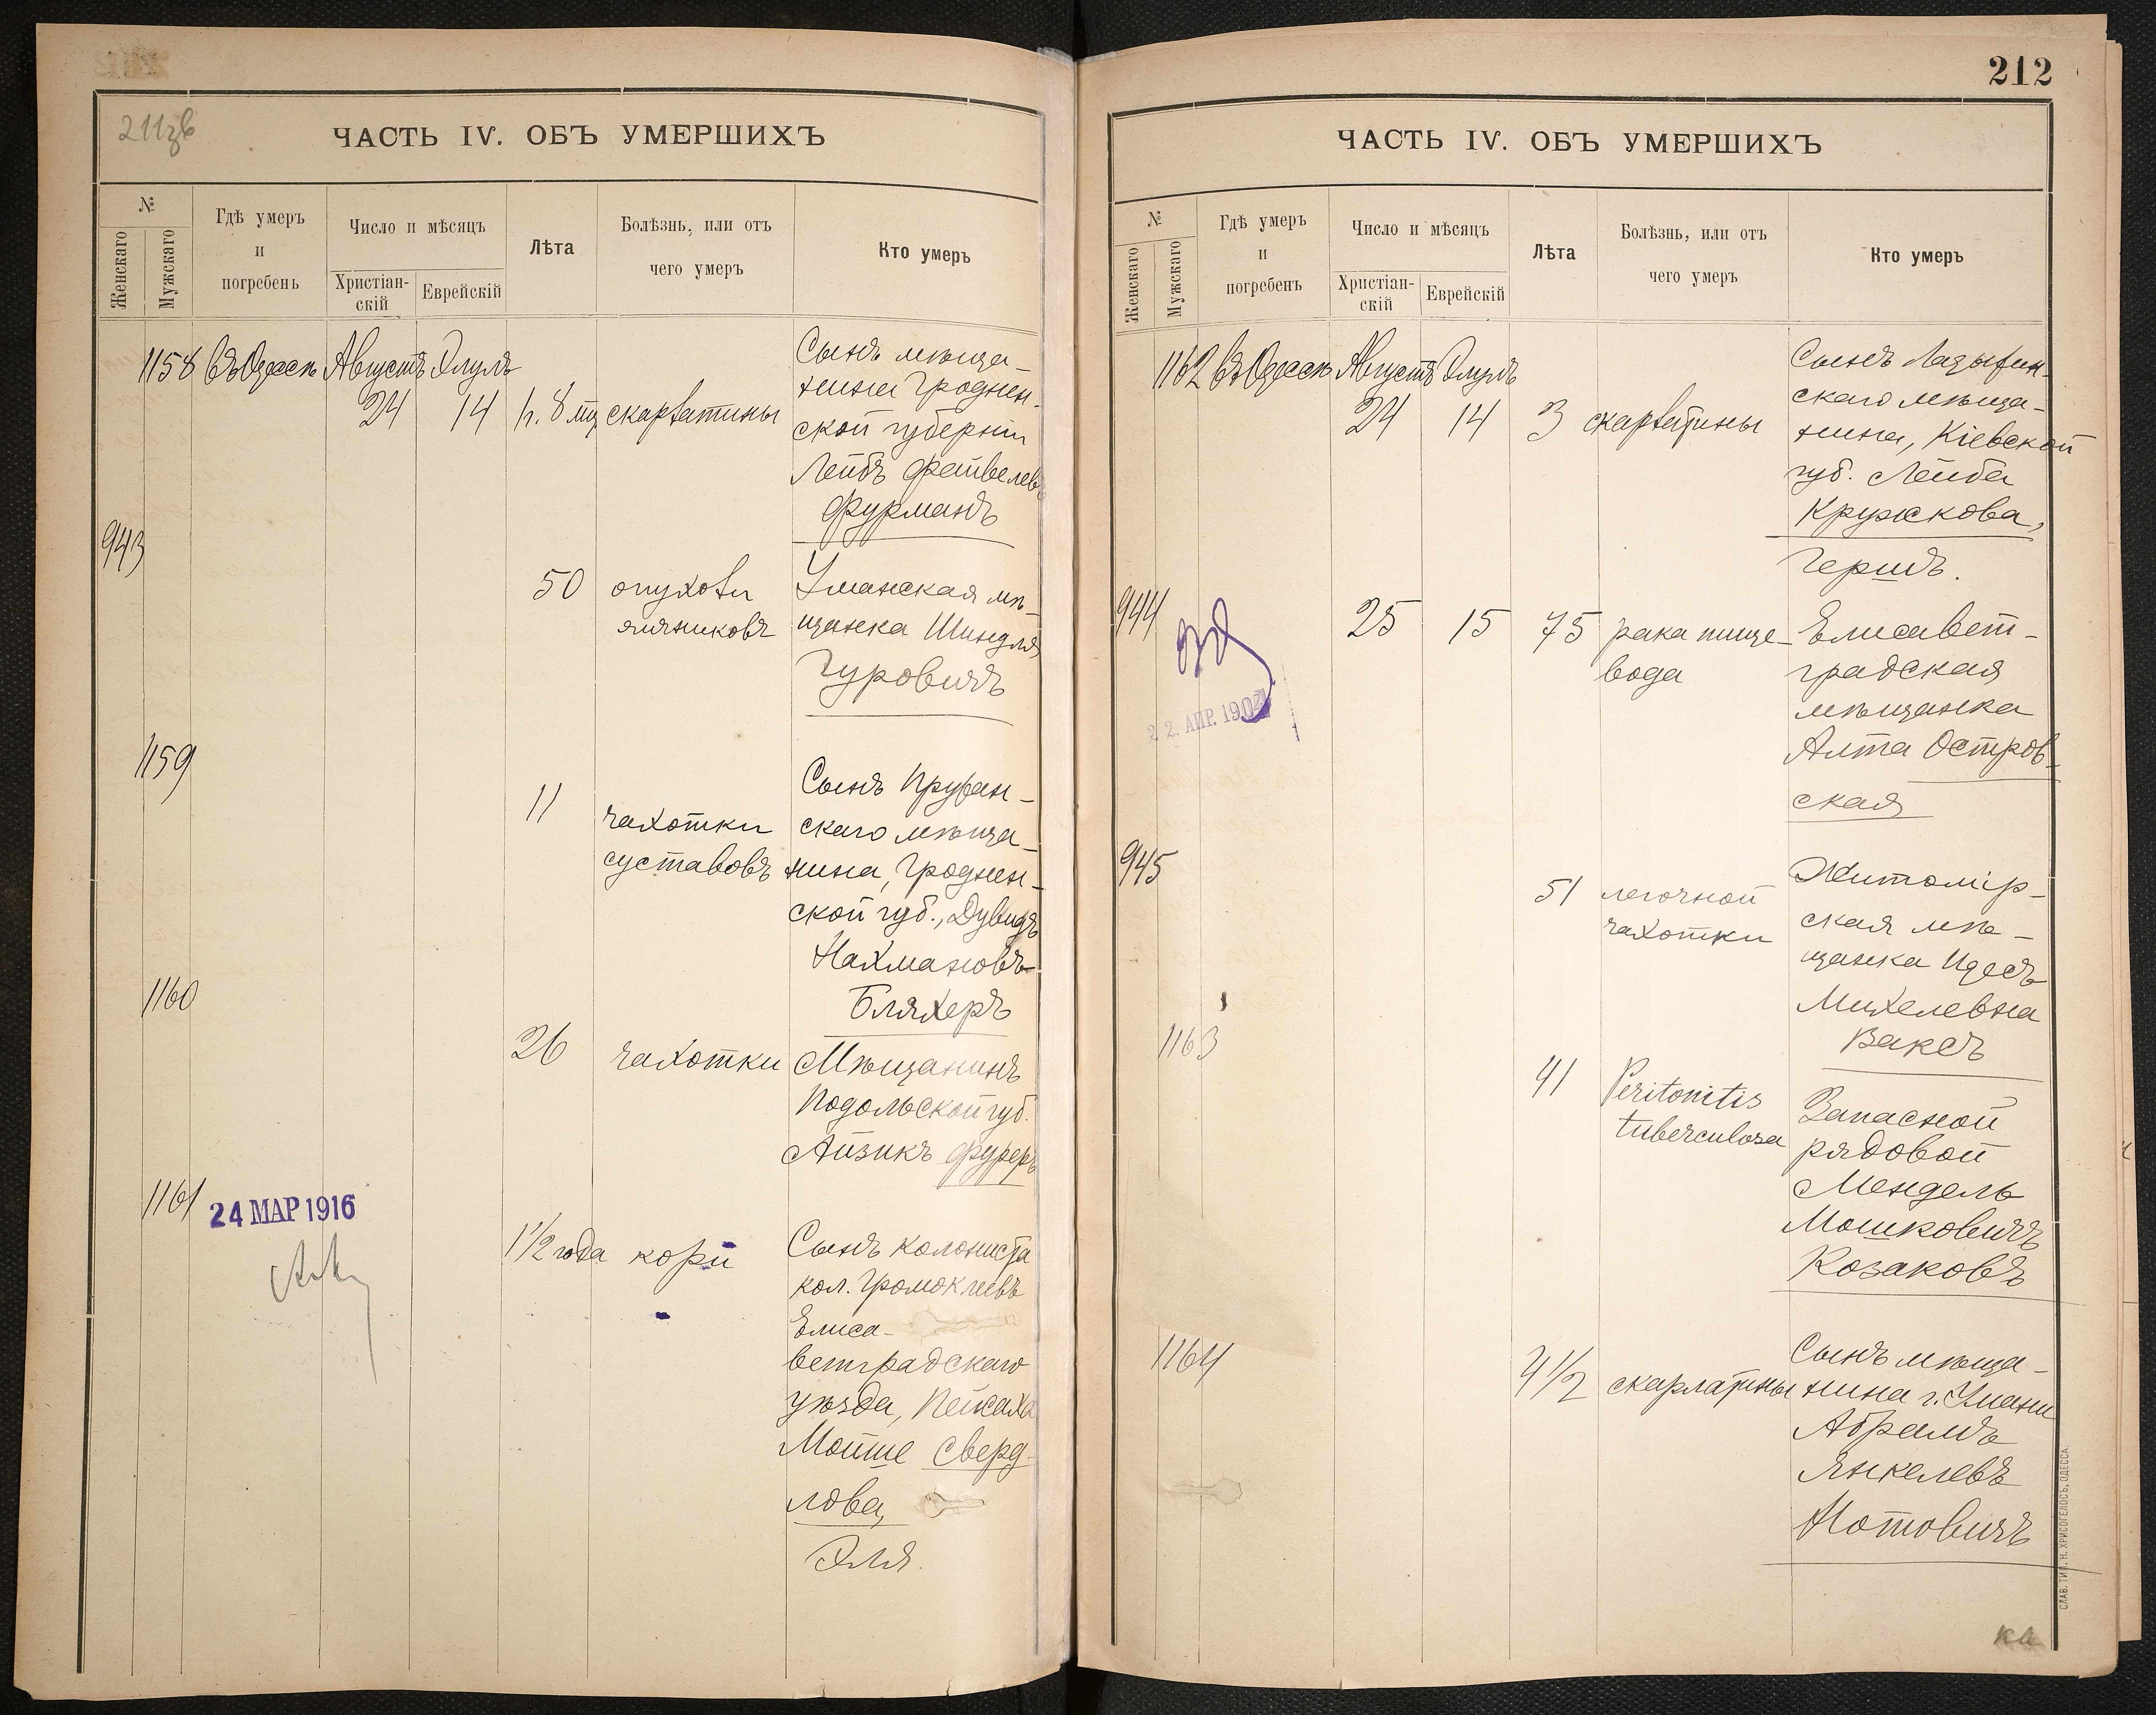 211зв
ЧАСТЬ IV. ОБЪ УМЕРШИХЪ
№
Женскаго
Мужскаго
Гдѣ умеръ
и
погребенъ
Число и мѣсяцъ
Христіан-
скій
Еврейскій
Лѣта
Болѣзнь, или отъ
чего умеръ
Кто умеръ
1158 Въ Одессѣ Августъ Элулъ
24 14 1 г. 8 мц скарлатины
Сынъ мѣща-
нина Гроднен-
ской губерніи
Лейбъ Файвелевъ
Фурманъ
943
50 опухоли
яичниковъ
Уманская мѣ-
щанка Шиндля
Гуровичъ
1159
11 чахотки
суставовъ
Сынъ Пружан-
скаго мѣща-
нина, Гроднен-
ской губ., Дувидъ
Нахмановъ
Бляхеръ
1160
26 чахотки
Мѣщанинъ
Подольской губ.
Айзикъ Фуреръ
1161
24 МАР 1916
1 1/2 года кори
Сынъ колониста
кол. Громоклеевъ
Елиса-
ветградскаго
уѣзда, Пейсаха
Мойше Сверд-
лова,
Эля.
212
ЧАСТЬ IV. ОБЪ УМЕРШИХЪ
№
Женскаго
Мужскаго
Гдѣ умеръ
и
погребенъ
Число и мѣсяцъ
Христіан-
скій
Еврейскій
Лѣта
Болѣзнь, или отъ
чего умеръ
Кто умеръ
1162 Въ Одессѣ Августъ Элулъ
24 14 3 скарлатины
Сынъ
скаго мѣща-
нина, Кіевской
губ. Лейба
Кружкова,
Гершъ.
944
22. АПР. 1904
25 15 75 рака пище-
вода
Елисавет-
градская
мѣщанка
Алта Остров-
ская
945
51 легочной
чахотки
Житомір-
ская мѣ-
щанка Идесъ
Михелевна
Ваксъ
1163
41 Peritonitis
tuberculosa
Запасной
рядовой
Мендель
Мошковичъ
Козаковъ
1164
4 1/2 скарлатины
Сынъ мѣща-
нина г. Умани
Абрамъ
Янкелевъ
Нотовичъ
СЛАВ. ТИП. Н. ХРИСОГЕЛОСЪ, ОДЕССА.